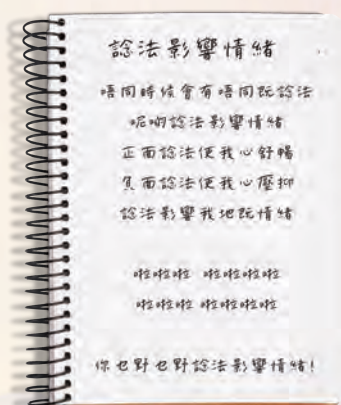 諗法影響情緒
唔同時候會有唔同既諗法
呢啲諗法影響情緒
正面諗法使我心舒暢
負面諗法使我心壓抑
諗法影響我地既情緒
啦啦啦 啦啦啦啦
啦啦啦 啦啦啦啦
你乜野乜野諗法影響情緒!